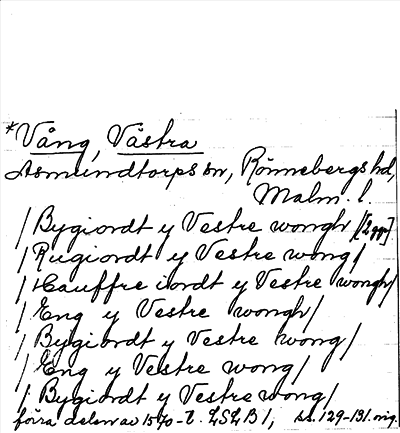 *Vång, Västra
Asmundtorps sn, Rönnebergs hd,
Malm. l.
/ Bygiordt y Vestre wongh /[2 ggr].
/ Rugiordt y Vestre wong /
/ Hauffre iordt y Vestre wongh /
/ Eng y Vestre wongh /
/ Bygiordt y Vestre wong /
/ Eng y Vestre wong /
/ Bygiordt y Vestre wong /
förra delen av 1570-t. LSLB 1, ss. 129-131. orig.